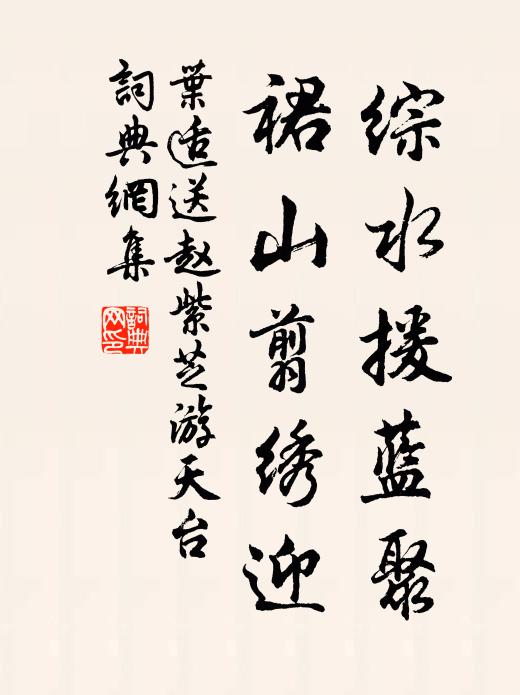 综水援蓝聚
裙山剪绣迎
葉适送赵紫芝游天台
詞典網集
詞典
网印